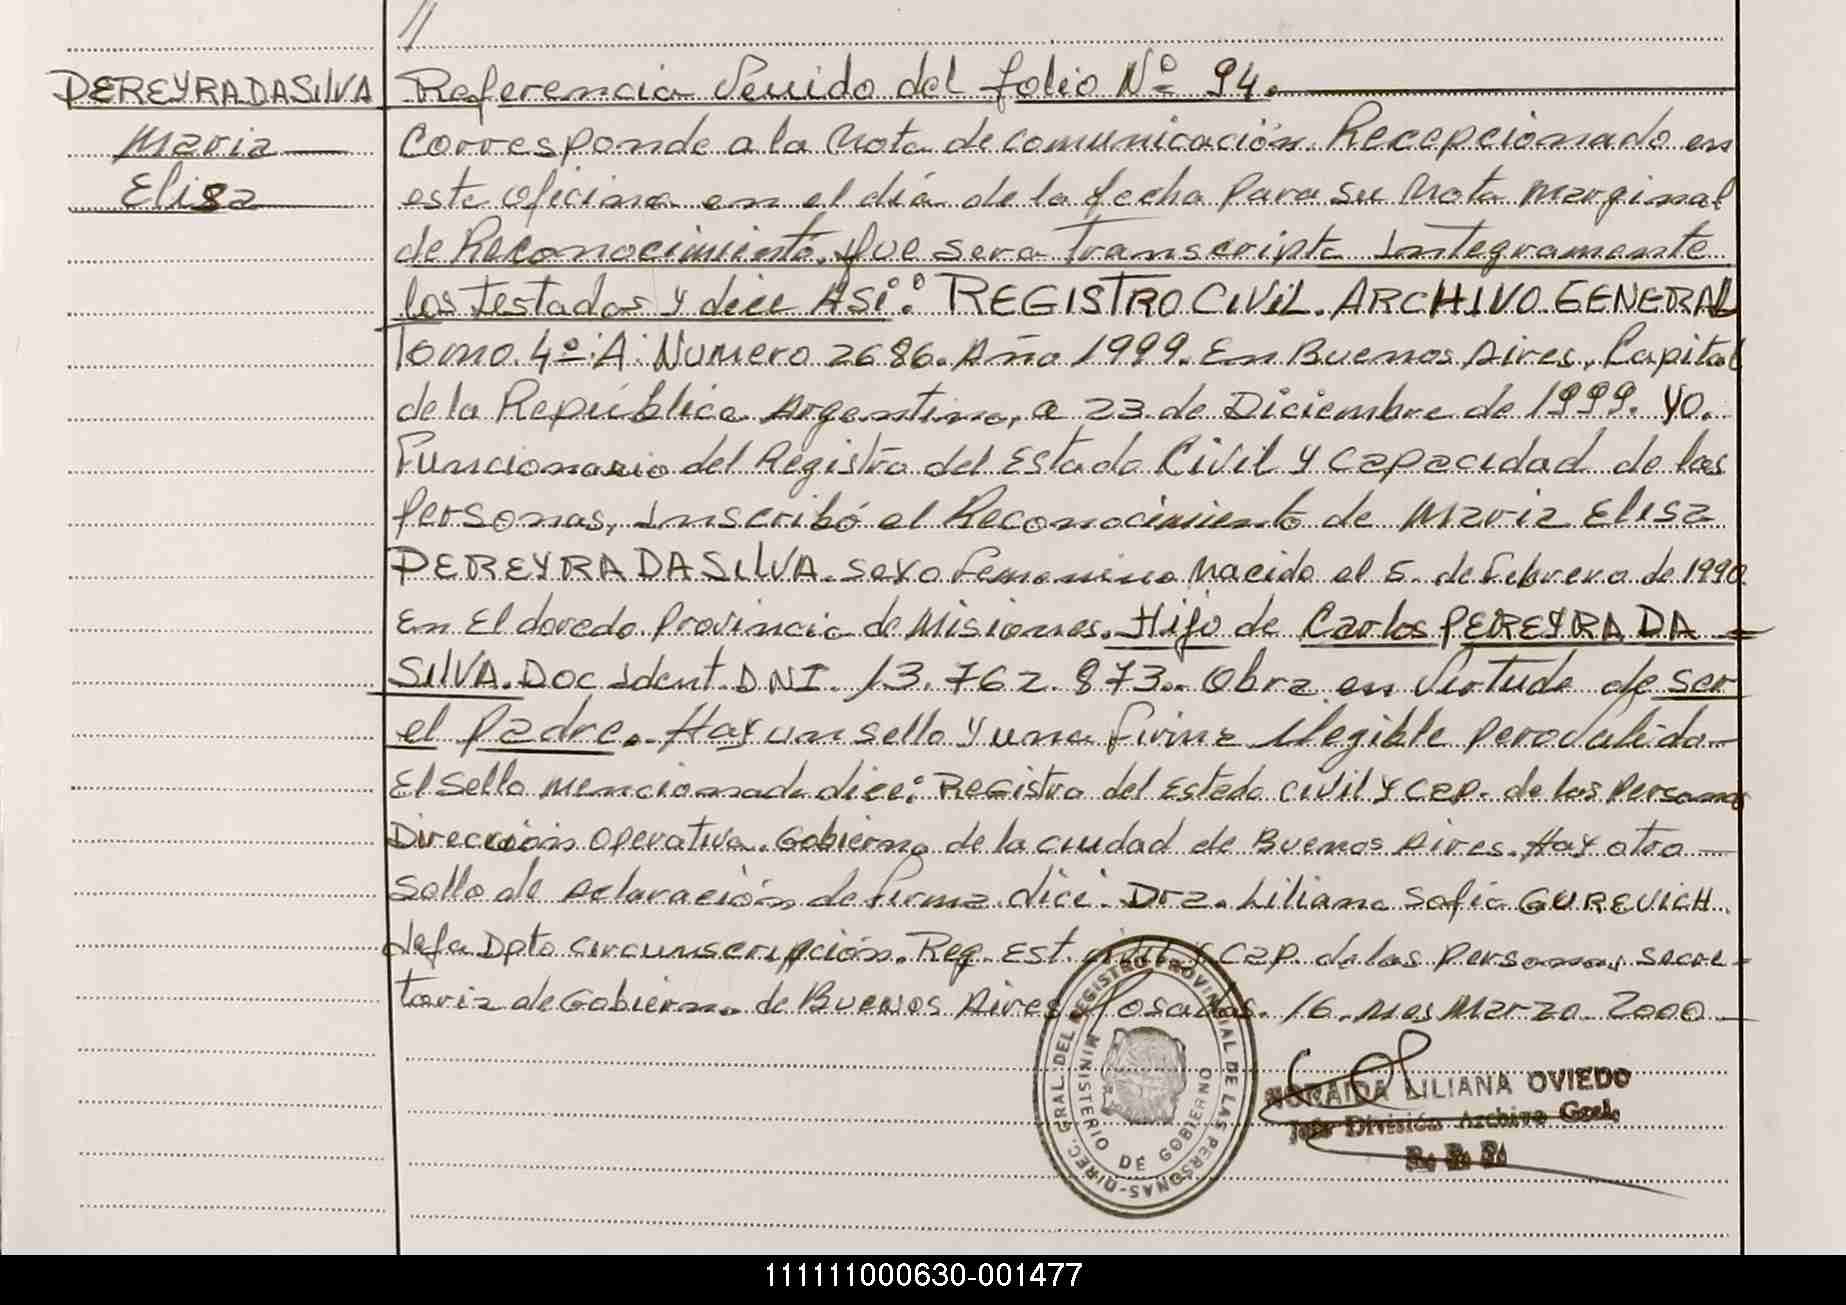 //
PEREYRA DA SILVA
Maria
Elisa
Referencia Venido del folio Nº 94.
Corresponde a la Nota de comunicación. Recepcionado en
esta oficina en el día de la fecha para su Nota marginal
de Reconocimiento. que sera transcripta Integramente
los testados y dice Asi: REGISTRO CIVIL. ARCHIVO GENERAL
Tomo 4º A. Numero 2686. Año 1999. En Buenos Aires, Capital
de la República Argentina, a 23 de Diciembre de 1999. yo.
Funcionario del Registro del Estado Civil y Capacidad de las
personas, Inscribó el Reconocimiento de Maria Elisa
PEREYRA DA SILVA. sexo femenino Nacido el 5. de febrero de 1990
En Eldorado Provincia de Misiones. Hijo de Carlos PEREYRA DA
SILVA. Doc Ident. DNI. 13.762.873. Obra en Virtude de ser
el padre. Hay un sello y una firma Ilegible pero valida
El sello mencionado dice: Registro del Estado civil y cap. de las Personas
Dirección Operativa. Gobierno de la ciudad de Buenos Aires. Hay otro
sello de Aclaración de firma dici. Dra. Liliana Sofia GUREVICH.
Jefa Dpto circunscripción. Reg. Est. civil y Cap. de las personas, secre-
taria de Gobierno de Buenos Aires Posadas. 16. mes Marzo 2000
DIREC. GRAL. DEL REGISTRO PROVINCIAL DE LAS PERSONAS
MINISTERIO DE GOBIERNO
NORAIDA LILIANA OVIEDO
Jefe División Archivo Gral.
R. P. P.
111111000630-001477